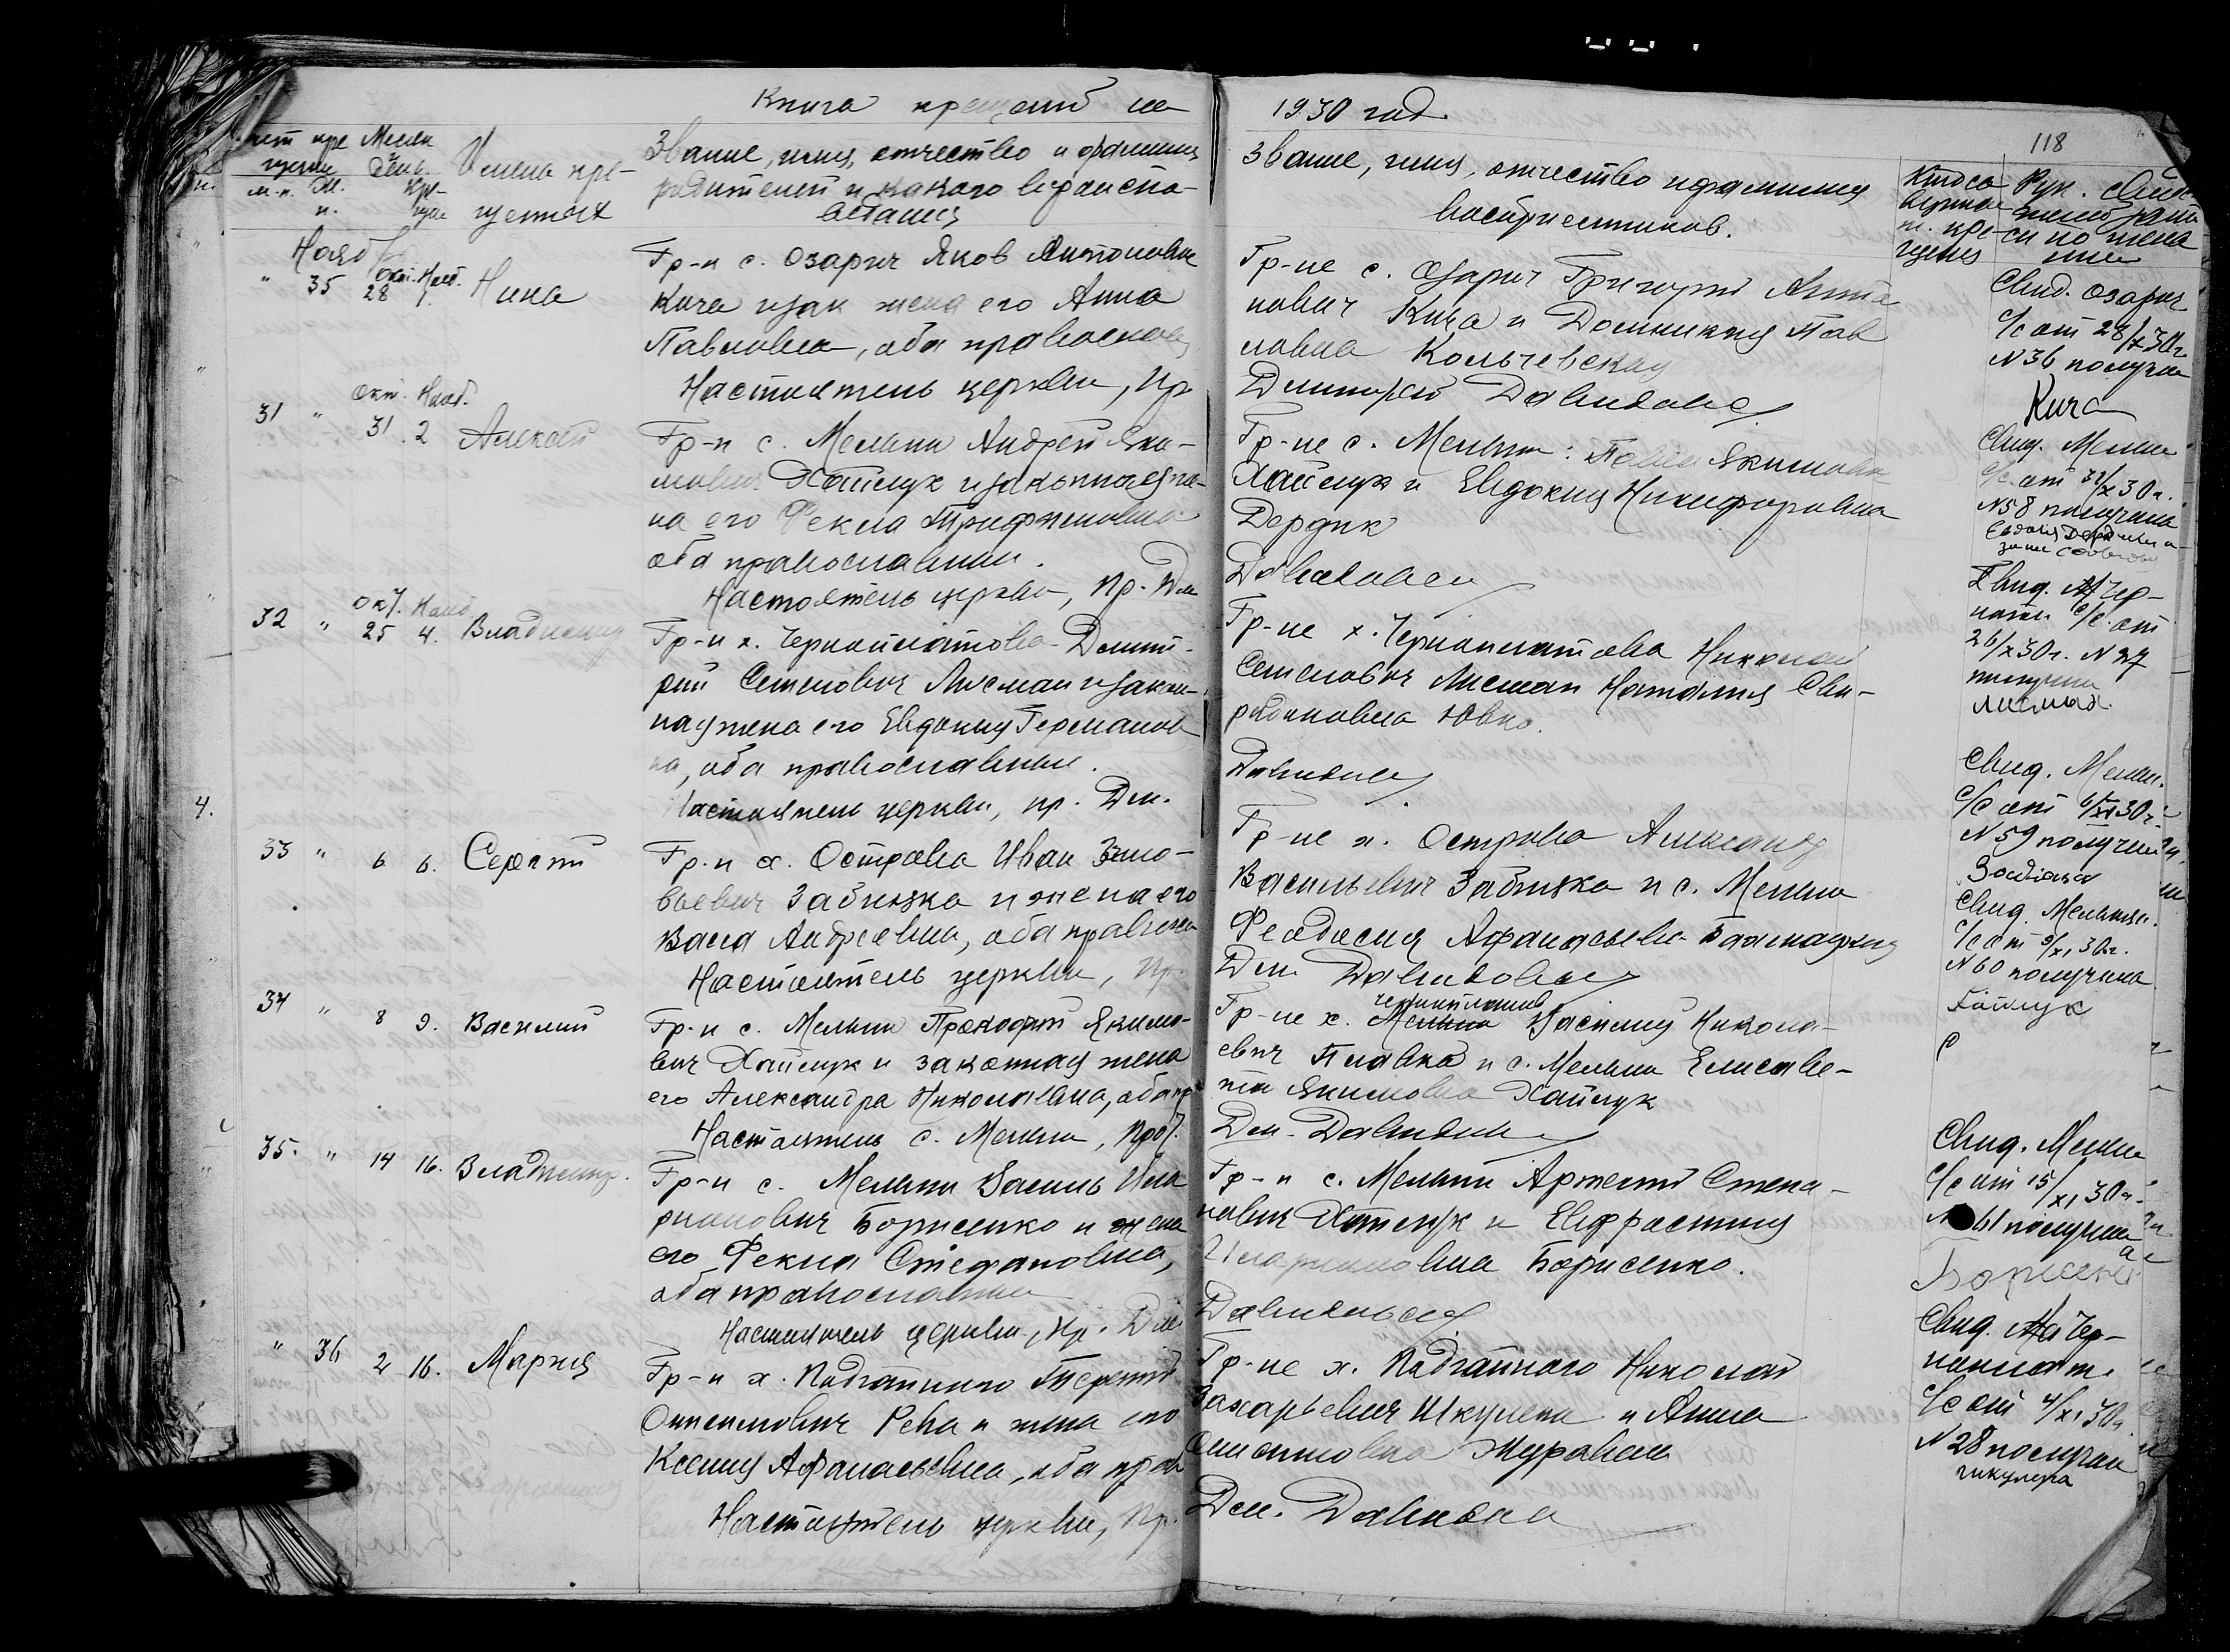 Книга крещений на
1930 год
118
Имена кре-
щенных
Звание, имя, отчество и фамилия
родителей и какого вероиспо-
ведания
Звание, имя, отчество и фамилия
восприемников.
Кто со
вершал
т. кре-
щения
Нояб
" 35 Окт. Нояб. 28 1. Нина
Гр-н с. Озарич Яков Антонович
Кича и зак жена его Анна
Павловна, оба православн
Настоятель церкви, пр
Гр-не с. Озарич Григорий Анто
нович Кича и Домникия Пав
ловна Кольчевская
Димитрий Давидович
Свид. Озарич
с/с от 28/X 30г.
N 36 получил
Кича
31 " Окт. Нояб. 31. 2 Алексей
Гр-н с. Мельни Андрей Яки-
мович Хайлук и законная же-
на его Фекла Трифоновна
оба православные.
Настоятель церкви, Пр. Дим
Гр-не с. Мельни: Павел Якимович
Хайлук и Евдокия Никифоровна
Дердик
Свид. Мельн
с/с от 31/X 30г.
N58 получила
32 " Окт. Нояб 25 4. Владимир
Гр-н х. Черноплатова Дмит-
рий Семенович Лисман и закон-
ная жена его Евдокия Германов
на, оба православные.
Настоятель церкви, пр. Дим.
Гр-не х. Черноплатова Николай
Семенович Лисман Наталия Сви-
ридоновна Ювко.
Свид. Чер-
с/с. от
26/X 30г. N 27
получил
Лисман.
4.
33 " 6 6. Сергий
Гр-н х. Острова Иван Зино-
воевич Забнязка и жена его
Васса Андреевна, оба правосл
Настоятель церкви, Пр.
Гр-не х. Острова Александр
Васильевич Забнязка и с. Мельни
Феодосия Афанасьевн
Дим. Давидович
Свид. Мельн.
с/с от 6/XI 30г.
N 59 получил
34 " 8 9. Василий
Гр-н с. Мельни Прокофий Якимо-
вич Хайлук и законная жена
его Александра Николаевна, оба пр
Настоятель с. Мельни, Прот.
Гр-не х. Черноплатов Василий Никола-
евич Плавка и с. Мельни Елисаве-
та Якимовна Хайлук
Дим. Давидович
Свид. Мельнян.
с/с от 9/XI 30г.
N 60 получила
Хайлук
35. " 14 16. Владимир.
Гр-н с. Мельни Василь Ила
рионович Борисенко и жена
его Фекла Стефановна,
оба православные
Настоятель церкви, Пр. Дим
Гр-н с. Мельни Артемий Степа-
нович Хайлук и Евфросиния
Иларионовна Борисенко.
Давидович
Свид. Мельн
с/с от 15/XI 30г.
N 61 получила
Борисенк
" 36 2 16. Мария
Гр-н х. Подгайного Терентий
Онисимович Рева и жена его
Ксения Афанасьевна, оба прав
Настоятель церкви, Пр.
Гр-не х. Подгайного Николай
Захарьевич Шкулепа и Анна
Онисимовна Журавель
Дим. Давидович
Свид. Чер-
ноплат.
с/с от 4/XI 30г.
N 28 получил